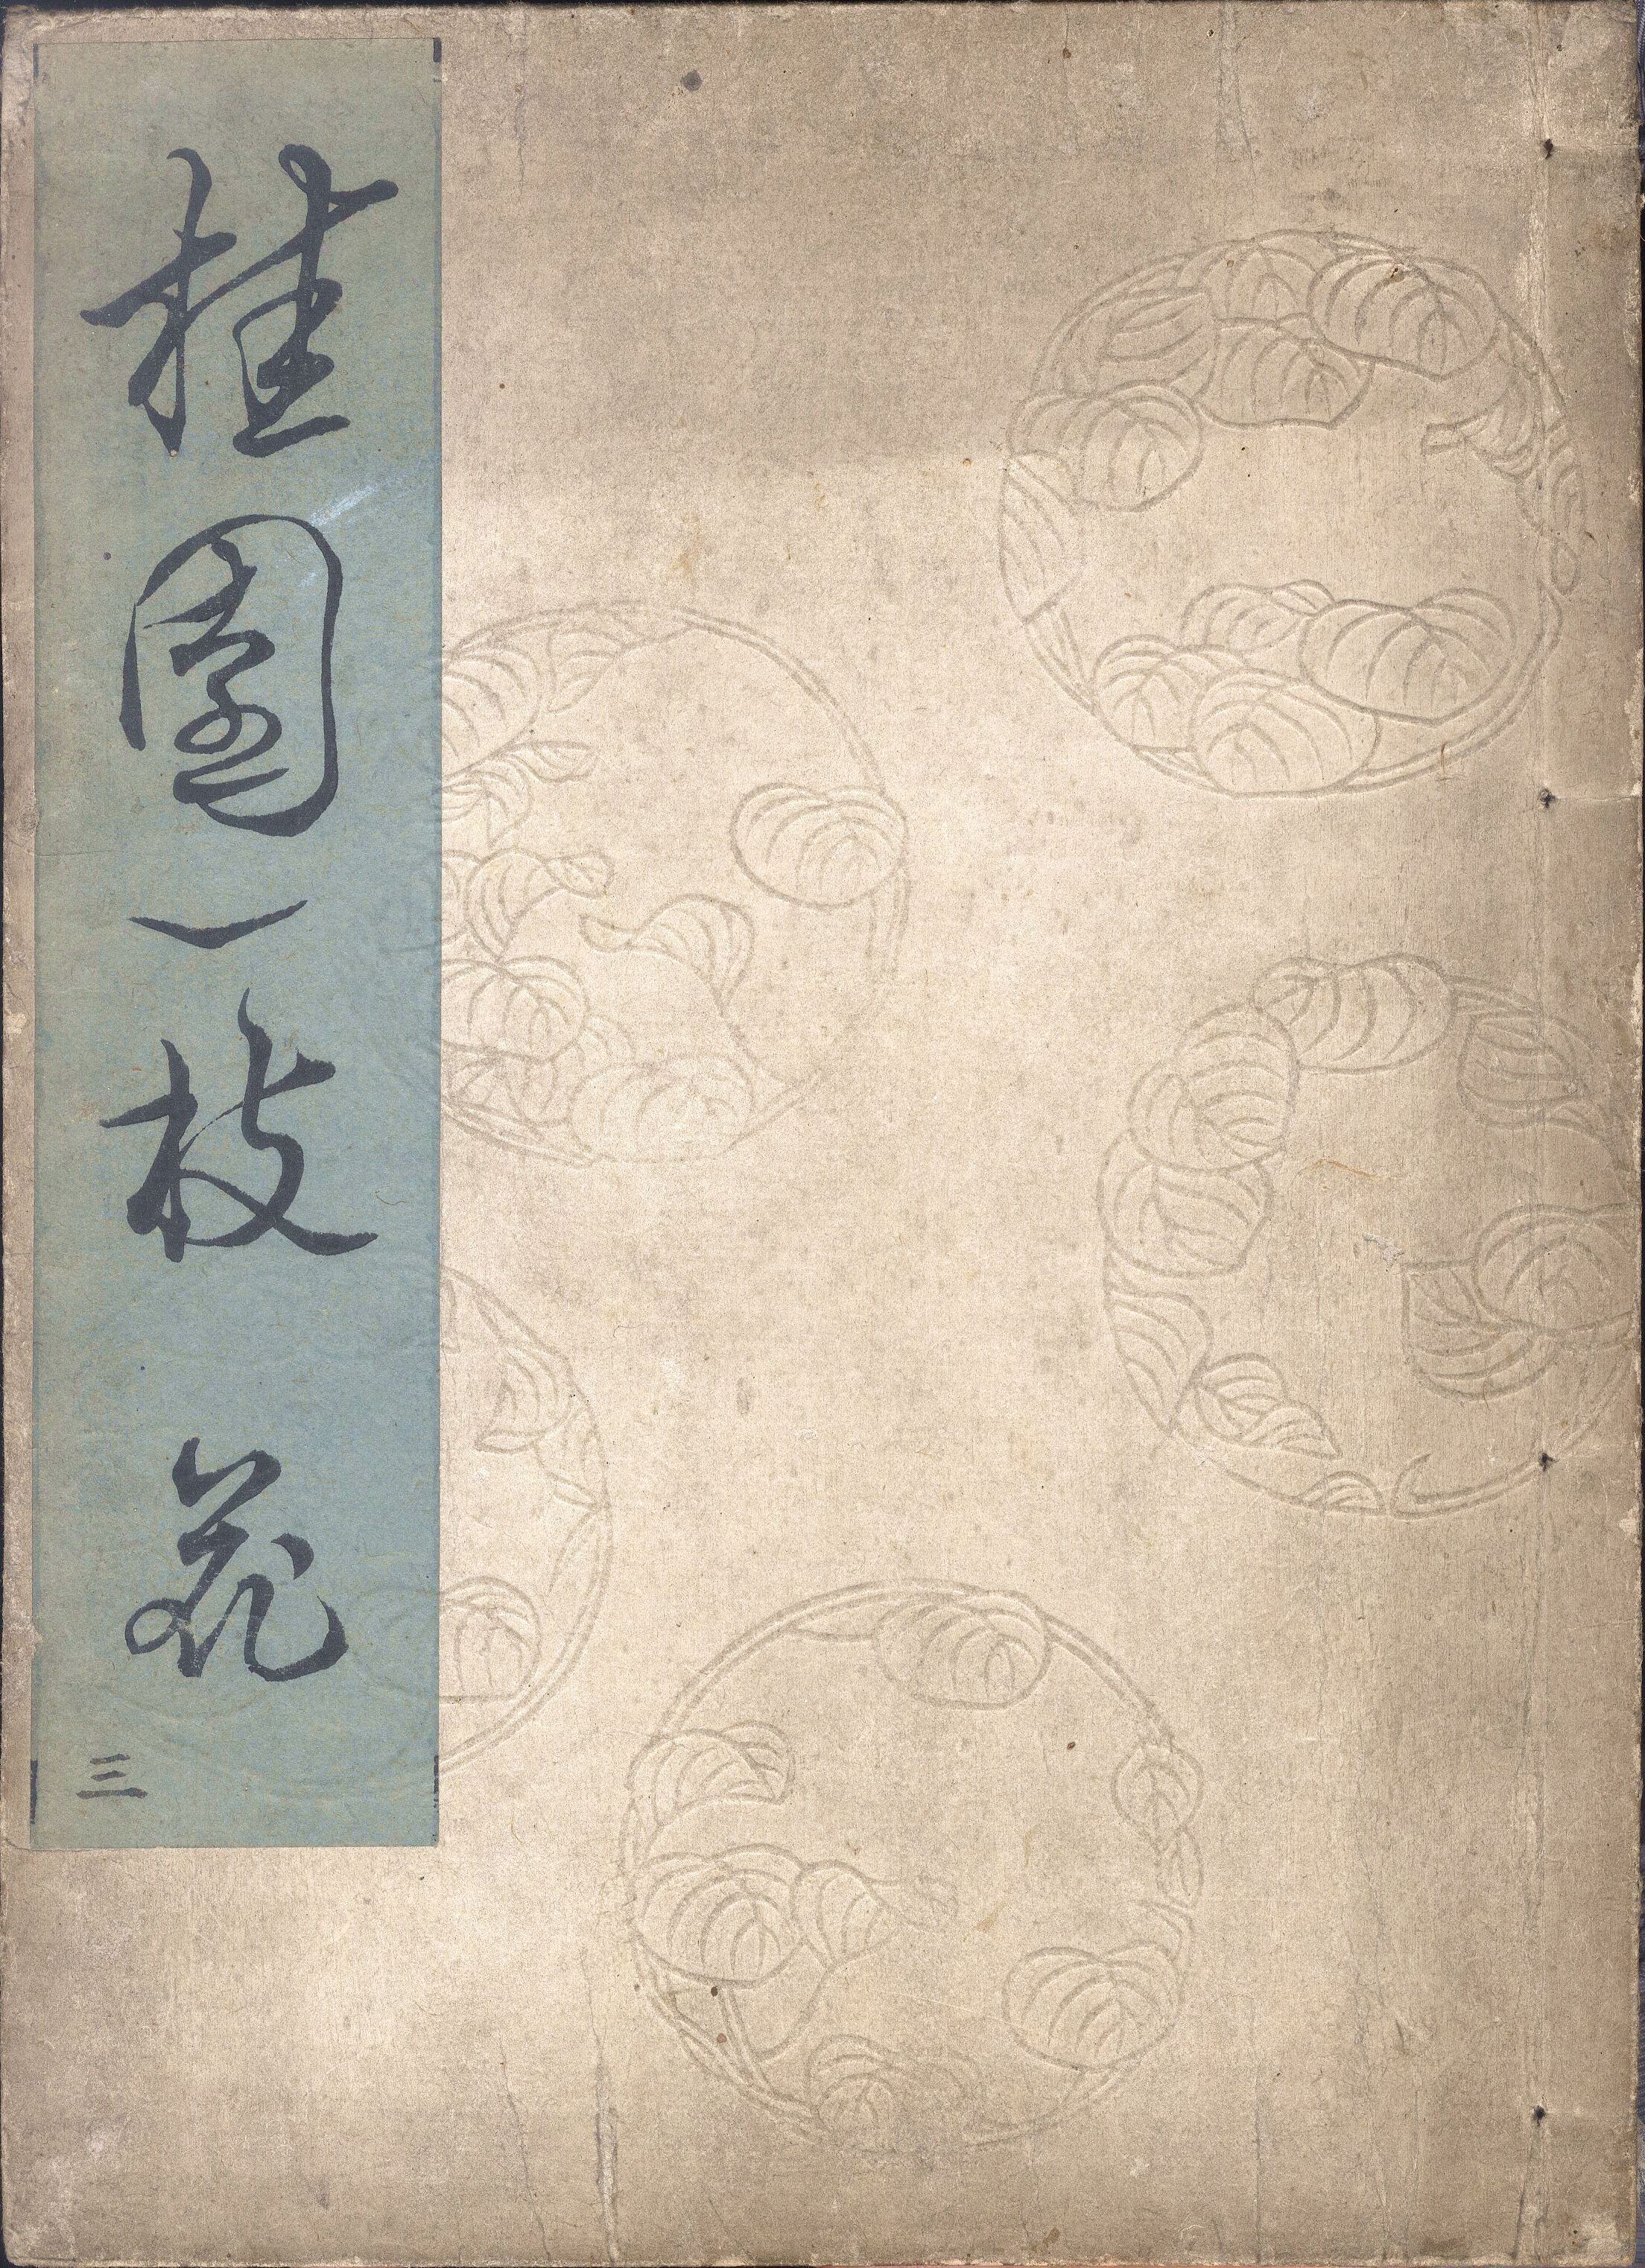 桂園一枝 花
三